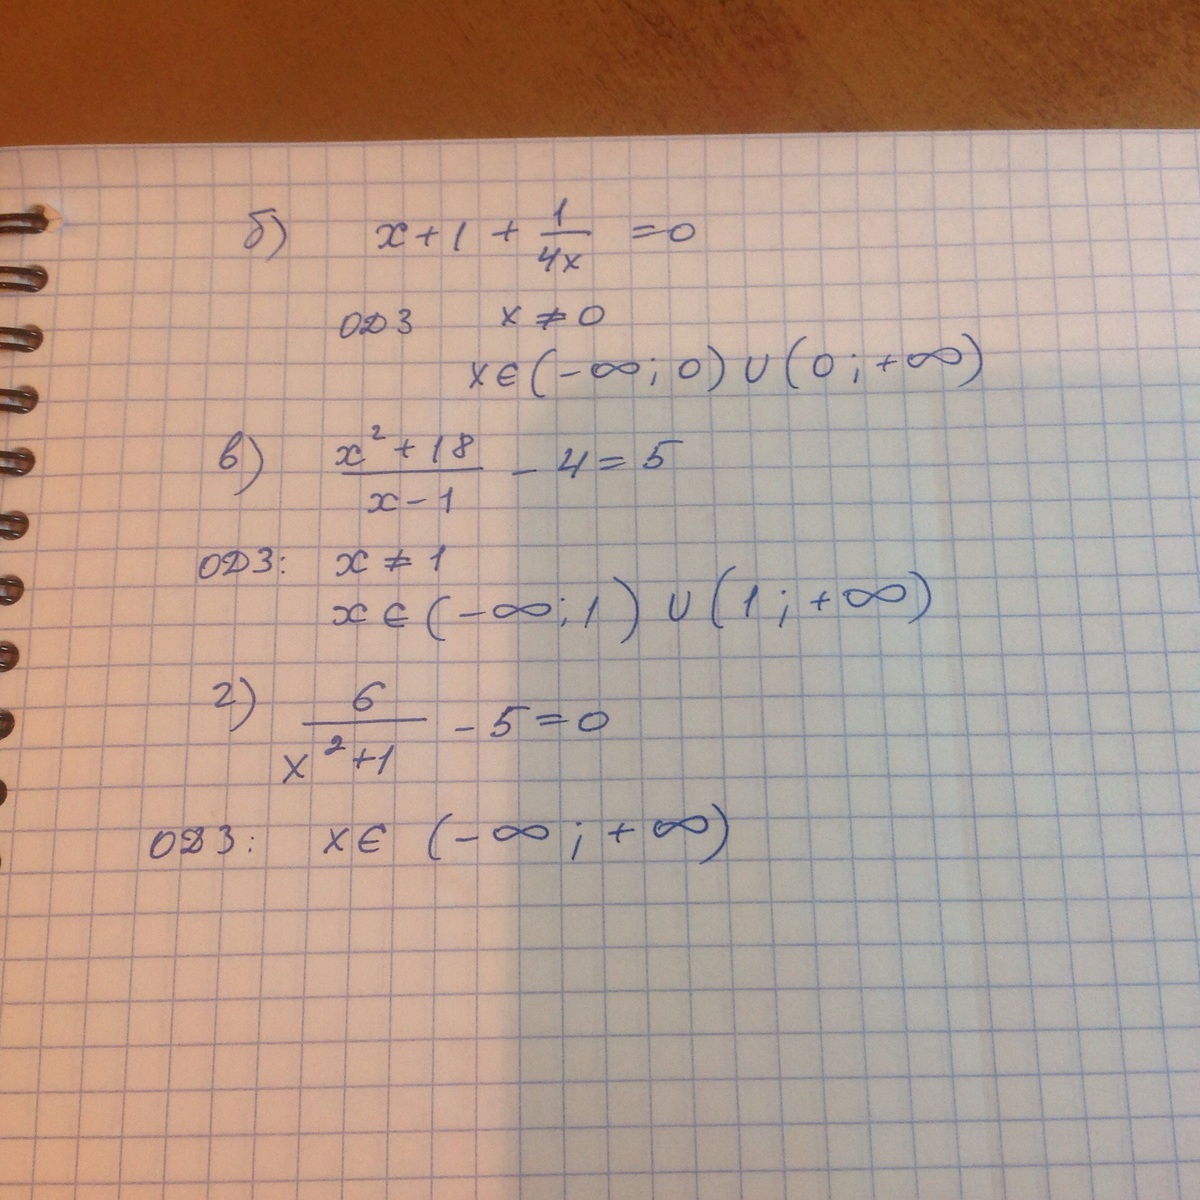 б) x + 1 + 1/(4x) = 0
ОДЗ x ≠ 0
x ∈ (-∞; 0) ∪ (0; +∞)
в) (x² + 18)/(x - 1) - 4 = 5
ОДЗ: x ≠ 1
x ∈ (-∞; 1) ∪ (1; +∞)
г) 6/(x² + 1) - 5 = 0
ОДЗ: x ∈ (-∞; +∞)